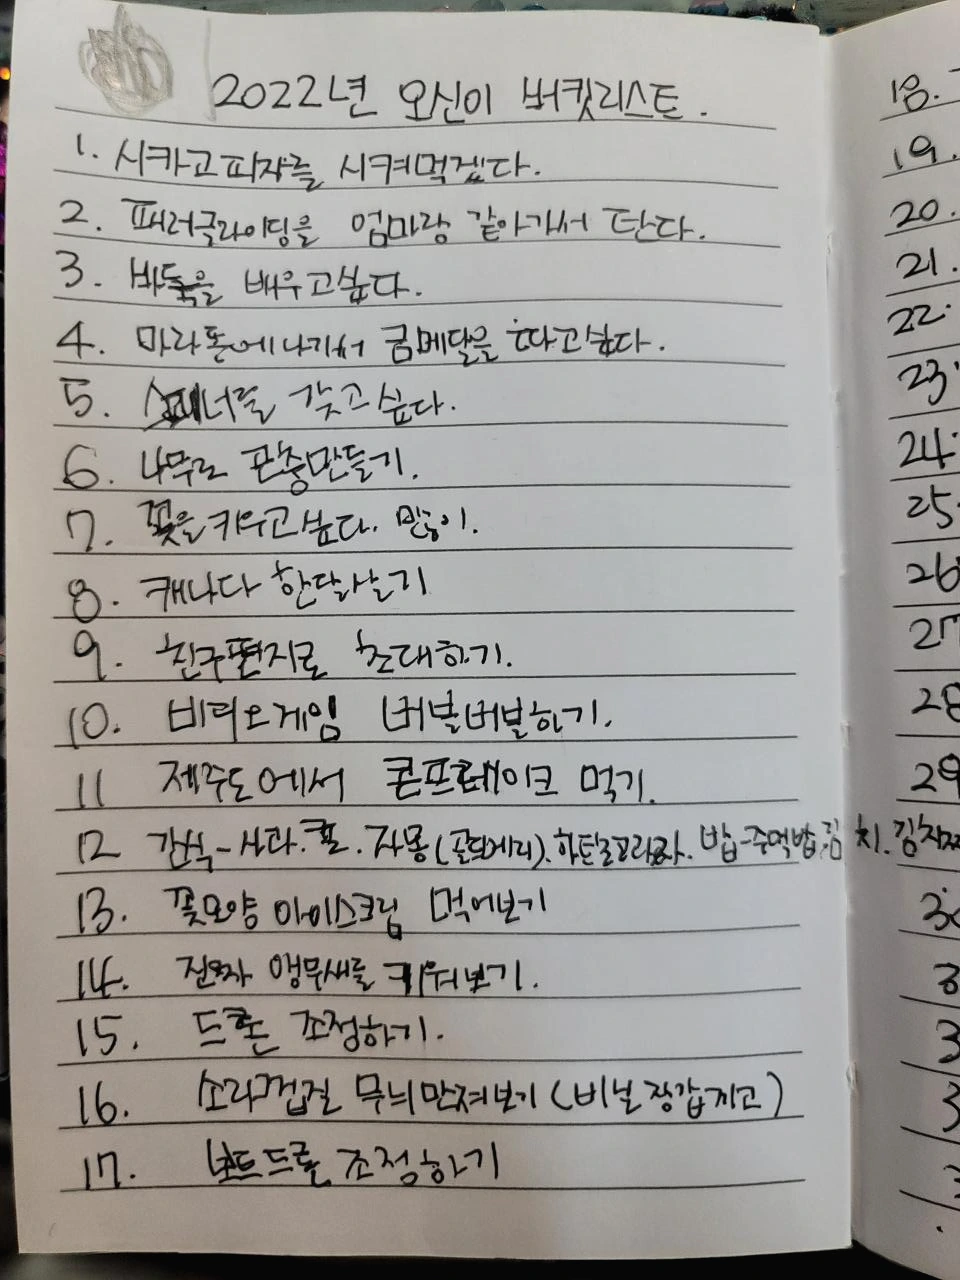 2022년 오신이 버킷리스트.
1. 시카고피자를 시켜먹겠다.
2. 패러글라이딩을 엄마랑 같이가서 탄다.
3. 바둑을 배우고싶다.
4. 마라톤에나가서 금메달을 따고싶다.
5. 스피너를 갖고싶다.
6. 나무로 곤충만들기.
7. 꽃을키우고싶다. 많이.
8. 캐나다 한달살기
9. 친구편지로 초대하기.
10. 비디오게임 버블버블하기.
11 제주도에서 콘프레이크 먹기.
12 간식-사과. . 자몽( ). . 밥-주먹밥, 김치.
13. 꽃모양 아이스크림 먹어보기
14. 전모자 앵무새를 키워보기.
15. 드론 조정하기.
16. 소라껍질 무늬만져보기(비닐장갑끼고)
17. 보트드론 조정하기
18.
19.
20.
21.
22.
23.
24.
25.
26
27
28
29